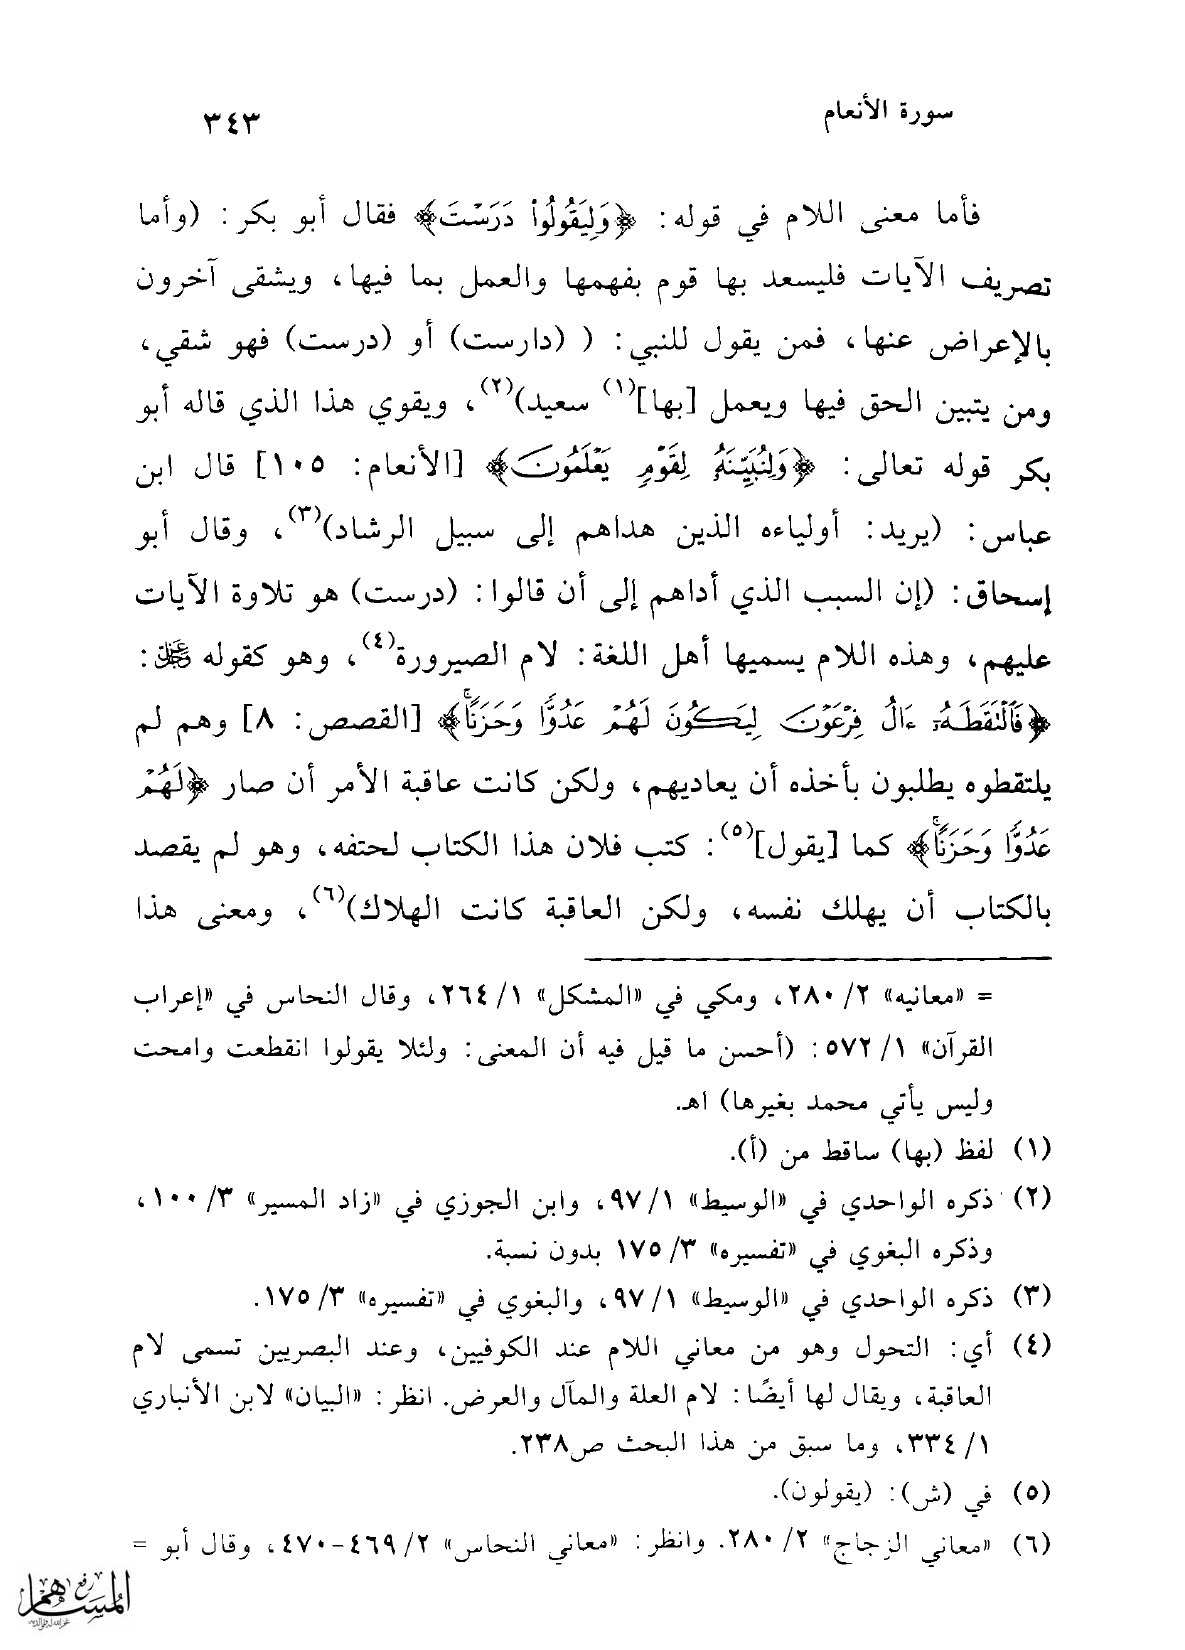 سورة الأنعام
٣٤٣
فأما معنى اللام في قوله: ﴿وَلِيَقُولُواْ دَرَسْتَ﴾ فقال أبو بكر: (وأما
تصريف الآيات فليسعد بها قوم بفهمها والعمل بما فيها، ويشقى آخرون
بالإعراض عنها، فمن يقول للنبي: ( (دارست) أو (درست) فهو شقي،
ومن يتبين الحق فيها ويعمل [بها](١) سعيد)(٢)، ويقوي هذا الذي قاله أبو
بكر قوله تعالى: ﴿وَلِنُبَيِّنَهُۥ لِقَوْمٍ يَعْلَمُونَ﴾ [الأنعام: ١٠٥] قال ابن
عباس: (يريد: أولياءه الذين هداهم إلى سبيل الرشاد)(٣)، وقال أبو
إسحاق: (إن السبب الذي أداهم إلى أن قالوا: (درست) هو تلاوة الآيات
عليهم، وهذه اللام يسميها أهل اللغة: لام الصيرورة(٤)، وهو كقوله عز وجل:
﴿فَٱلْتَقَطَهُۥٓ ءَالُ فِرْعَوْنَ لِيَكُونَ لَهُمْ عَدُوًّا وَحَزَنًاۗ﴾ [القصص: ٨] وهم لم
يلتقطوه يطلبون بأخذه أن يعاديهم، ولكن كانت عاقبة الأمر أن صار ﴿لَهُمْ
عَدُوًّا وَحَزَنًاۗ﴾ كما [يقول](٥): كتب فلان هذا الكتاب لحتفه، وهو لم يقصد
بالكتاب أن يهلك نفسه، ولكن العاقبة كانت الهلاك)(٦)، ومعنى هذا
= «معانيه» ٢/ ٢٨٠، ومكي في «المشكل» ١/ ٢٦٤، وقال النحاس في «إعراب
القرآن» ١/ ٥٧٢: (أحسن ما قيل فيه أن المعنى: ولئلا يقولوا انقطعت وامحت
وليس يأتي محمد بغيرها) اهـ.
(١) لفظ (بها) ساقط من (أ).
(٢) ذكره الواحدي في «الوسيط» ١/ ٩٧، وابن الجوزي في «زاد المسير» ٣/ ١٠٠،
وذكره البغوي في «تفسيره» ٣/ ١٧٥ بدون نسبة.
(٣) ذكره الواحدي في «الوسيط» ١/ ٩٧، والبغوي في «تفسيره» ٣/ ١٧٥.
(٤) أي: التحول وهو من معاني اللام عند الكوفيين، وعند البصريين تسمى لام
العاقبة، ويقال لها أيضًا: لام العلة والمآل والعرض. انظر: «البيان» لابن الأنباري
١/ ٣٣٤، وما سبق من هذا البحث ص٢٣٨.
(٥) في (ش): (يقولون).
(٦) «معاني الزجاج» ٢/ ٢٨٠. وانظر: «معاني النحاس» ٢/ ٤٦٩-٤٧٠، وقال أبو =